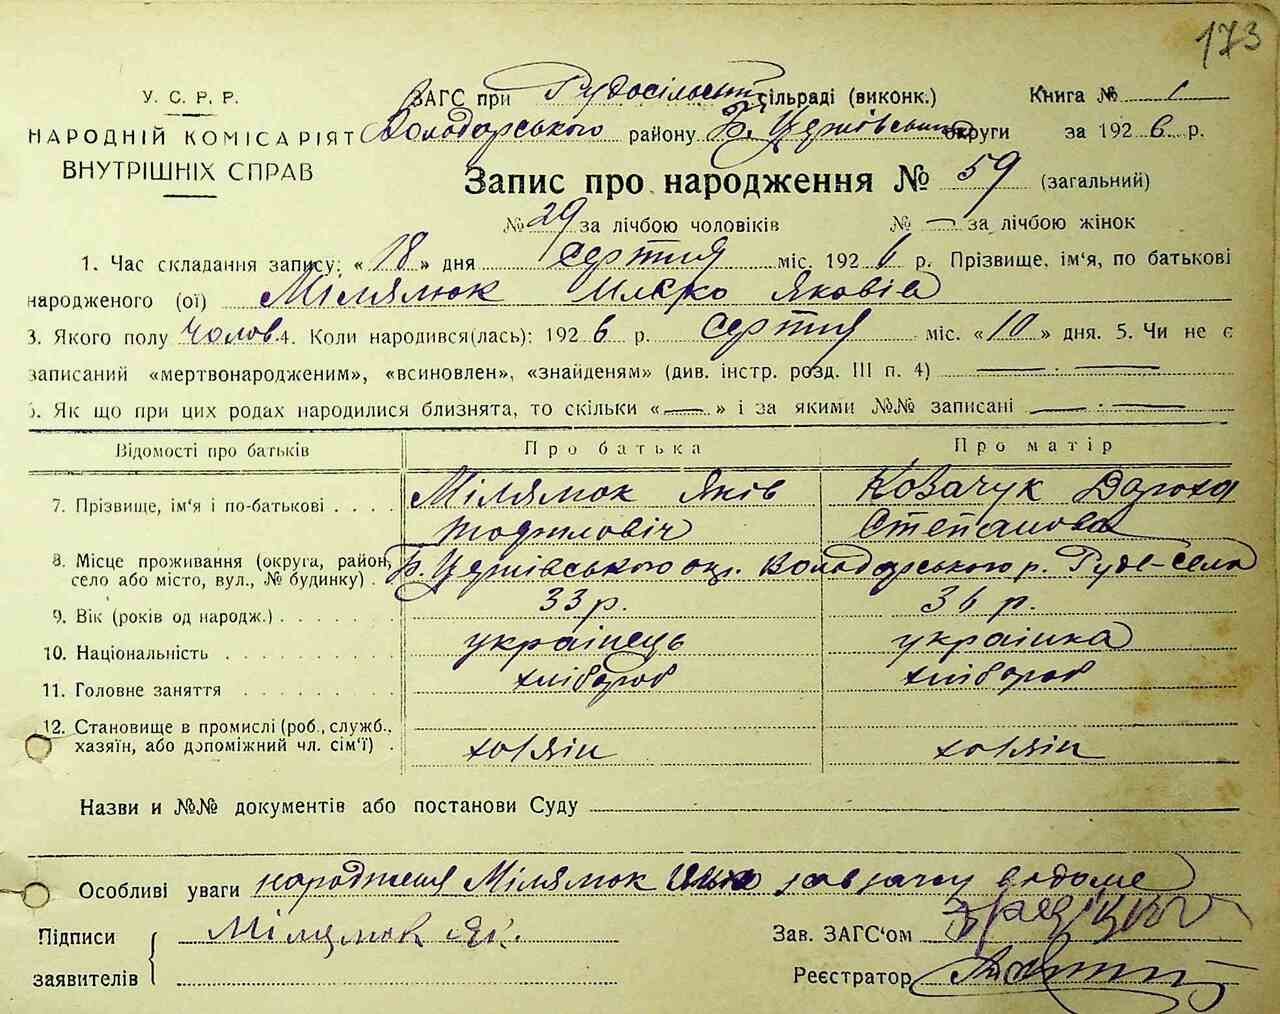 173
У. С. Р. Р.
НАРОДНІЙ КОМІСАРІЯТ
ВНУТРІШНІХ СПРАВ
ЗАГС при Рудосільській сільраді (виконк.) Книга № 1
Володарського району Б. Церківської округи за 1926 р.
Запис про народження № 59 (загальний)
№ 29 за лічбою чоловіків № — за лічбою жінок
1. Час складання запису: « 18 » дня серпня міс. 1926 р. Прізвище, ім'я, по батькові
народженого (ої) Мілямок Ілько Яковів
3. Якого полу Чолов. 4. Коли народився(лась): 1926 р. серпня міс. «10» дня. 5. Чи не є
записаний «мертвонародженим», «всиновлен», «знайденям» (див. інстр. розд. III п. 4) — —
6. Як що при цих родах народилися близнята, то скільки «—» і за якими №№ записані — —
Відомості про батьків Про батька Про матір
7. Прізвище, ім'я і по-батькові . . . . Мілямок Яків Ковачук Дарохя
Степанова
8. Місце проживання (округа, район, село або місто, вул., № будинку) . Б. Церківського окр. Володарського р. Руде-село
9. Вік (років од народж.) . . . . . . 33 р. 36 р.
10. Національність . . . . . . . . . українець українка
11. Головне заняття . . . . . . . хлібороб хлібороб
12. Становище в промислі (роб., служб., хазяїн, або допоміжний чл. сім'ї) . хазяїн хазяїн
Назви и №№ документів або постанови Суду
Особливі уваги народження Мілямок завзачу
Підписи Мілямок Як. Зав. ЗАГС'ом
заявителів Реєстратор